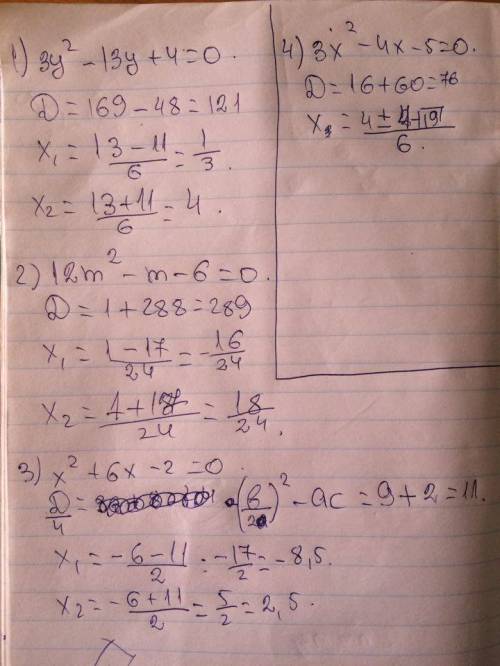 1) 3y² - 13y + 4 = 0.
D = 169 - 48 = 121
x₁ = (13 - 11)/6 = 1/3.
x₂ = (13 + 11)/6 = 4.
2) 12m² - m - 6 = 0.
D = 1 + 288 = 289
x₁ = (1 - 17)/24 = -16/24
x₂ = (1 + 17)/24 = 18/24.
3) x² + 6x - 2 = 0.
D/4 = (6/2)² - ac = 9 + 2 = 11.
x₁ = (-6 - 11)/2 = -17/2 = -8,5.
x₂ = (-6 + 11)/2 = 5/2 = 2,5.
4) 3x² - 4x - 5 = 0.
D = 16 + 60 = 76